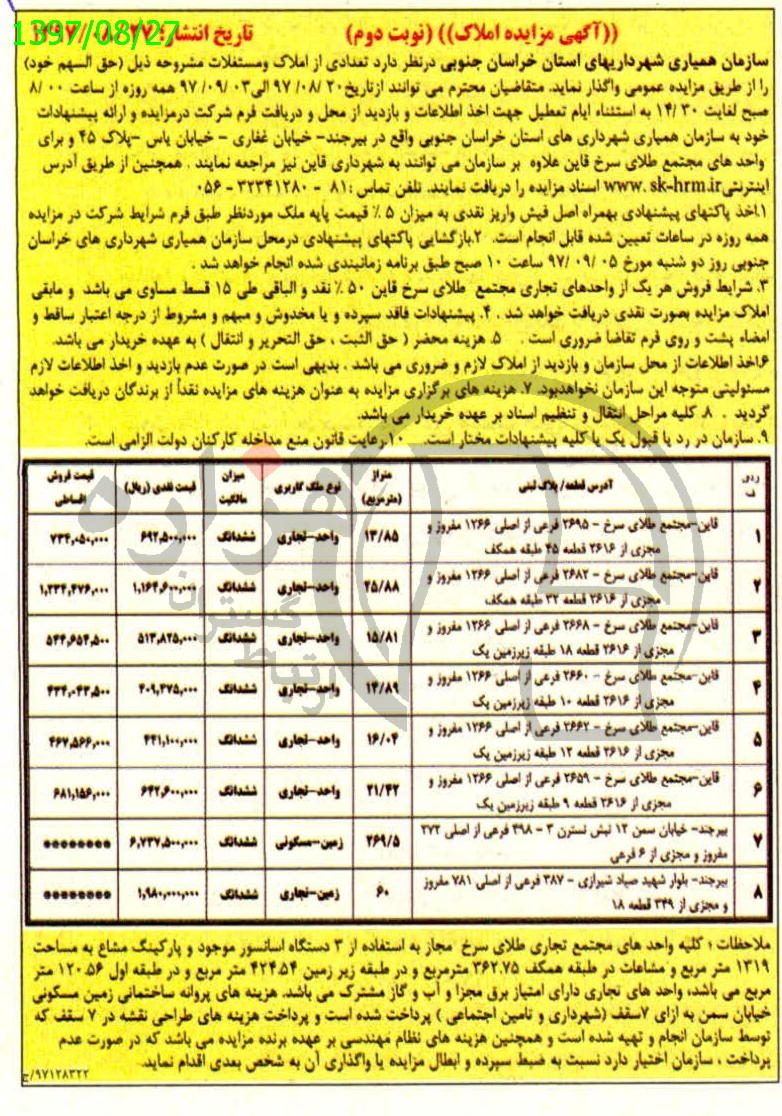 1397/08/27
((آگهی مزایده املاک)) (نوبت دوم) تاریخ انتشار: ۱۳۹۷/۰۸/۲۷
سازمان همیاری شهرداریهای استان خراسان جنوبی درنظر دارد تعدادی از املاک ومستغلات مشروحه ذیل (حق السهم خود)
را از طریق مزایده عمومی واگذار نماید. متقاضیان محترم می توانند ازتاریخ۲۰ /۰۸/ ۹۷ الی۰۳ /۰۹/ ۹۷ همه روزه از ساعت ۰۰ /۸
صبح لغایت ۳۰ /۱۴ به استثناء ایام تعطیل جهت اخذ اطلاعات و بازدید از محل و دریافت فرم شرکت درمزایده و ارائه پیشنهادات
خود به سازمان همیاری شهرداری های استان خراسان جنوبی واقع در بیرجند– خیابان غفاری – خیابان یاس –پلاک ۴۵ و برای
واحد های مجتمع طلای سرخ قاین علاوه بر سازمان می توانند به شهرداری قاین نیز مراجعه نمایند . همچنین از طریق آدرس
اینترنتیwww. sk-hrm.ir اسناد مزایده را دریافت نمایند. تلفن تماس :۸۱ - ۳۲۳۴۱۲۸۰ - ۰۵۶
۱.اخذ پاکتهای پیشنهادی بهمراه اصل فیش واریز نقدی به میزان ۵ ٪ قیمت پایه ملک موردنظر طبق فرم شرایط شرکت در مزایده
همه روزه در ساعات تعیین شده قابل انجام است. ۲.بازگشایی پاکتهای پیشنهادی درمحل سازمان همیاری شهرداری های خراسان
جنوبی روز دو شنبه مورخ ۰۵ /۰۹ /۹۷ ساعت ۱۰ صبح طبق برنامه زمانبندی شده انجام خواهد شد .
۳. شرایط فروش هر یک از واحدهای تجاری مجتمع طلای سرخ قاین ۵۰ ٪ نقد و الباقی طی ۱۵ قسط مساوی می باشد و مابقی
املاک مزایده بصورت نقدی دریافت خواهد شد . ۴. پیشنهادات فاقد سپرده و یا مخدوش و مبهم و مشروط از درجه اعتبار ساقط و
امضاء پشت و روی فرم تقاضا ضروری است . ۵. هزینه محضر ( حق الثبت ، حق التحریر و انتقال ) به عهده خریدار می باشد.
۶.اخذ اطلاعات از محل سازمان و بازدید از املاک لازم و ضروری می باشد . بدیهی است در صورت عدم بازدید و اخذ اطلاعات لازم
مسئولیتی متوجه این سازمان نخواهدبود. ۷. هزینه های برگزاری مزایده به عنوان هزینه های مزایده نقداً از برندگان دریافت خواهد
گردید . ۸. کلیه مراحل انتقال و تنظیم اسناد بر عهده خریدار می باشد.
۹. سازمان در رد یا قبول یک یا کلیه پیشنهادات مختار است. ۱۰.رعایت قانون منع مداخله کارکنان دولت الزامی است.
ردیف آدرس قطعه/ پلاک ثبتی متراژ (مترمربع) نوع ملک کاربری میزان مالکیت قیمت نقدی (ریال) قیمت فروش اقساطی
۱ قاین–مجتمع طلای سرخ – ۲۶۹۵ فرعی از اصلی ۱۲۶۶ مفروز و
مجزی از ۲۶۱۶ قطعه ۴۵ طبقه همکف ۱۳/۸۵ واحد–تجاری ششدانگ ۶۹۲,۵۰۰,۰۰۰ ۷۳۴,۰۵۰,۰۰۰
۲ قاین–مجتمع طلای سرخ – ۲۶۸۲ فرعی از اصلی ۱۲۶۶ مفروز و
مجزی از ۲۶۱۶ قطعه ۳۲ طبقه همکف ۲۵/۸۸ واحد–تجاری ششدانگ ۱,۱۶۴,۶۰۰,۰۰۰ ۱,۲۳۴,۴۷۶,۰۰۰
۳ قاین–مجتمع طلای سرخ – ۲۶۶۸ فرعی از اصلی ۱۲۶۶ مفروز و
مجزی از ۲۶۱۶ قطعه ۱۸ طبقه زیرزمین یک ۱۵/۸۱ واحد–تجاری ششدانگ ۵۱۳,۸۲۵,۰۰۰ ۵۴۴,۶۵۴,۵۰۰
۴ قاین–مجتمع طلای سرخ – ۲۶۶۰ فرعی از اصلی ۱۲۶۶ مفروز و
مجزی از ۲۶۱۶ قطعه ۱۰ طبقه زیرزمین یک ۱۴/۸۹ واحد–تجاری ششدانگ ۴۰۹,۴۷۵,۰۰۰ ۴۳۴,۰۴۳,۵۰۰
۵ قاین–مجتمع طلای سرخ – ۲۶۶۲ فرعی از اصلی ۱۲۶۶ مفروز و
مجزی از ۲۶۱۶ قطعه ۱۲ طبقه زیرزمین یک ۱۶/۰۴ واحد–تجاری ششدانگ ۴۴۱,۱۰۰,۰۰۰ ۴۶۷,۵۶۶,۰۰۰
۶ قاین–مجتمع طلای سرخ – ۲۶۵۹ فرعی از اصلی ۱۲۶۶ مفروز و
مجزی از ۲۶۱۶ قطعه ۹ طبقه زیرزمین یک ۲۱/۴۲ واحد–تجاری ششدانگ ۶۴۲,۶۰۰,۰۰۰ ۶۸۱,۱۵۶,۰۰۰
۷ بیرجند– خیابان سمن ۱۲ نبش نسترن ۳ – ۴۹۸ فرعی از اصلی ۲۷۲
مفروز و مجزی از ۶ فرعی ۲۶۹/۵ زمین–مسکونی ششدانگ ۶,۷۳۷,۵۰۰,۰۰۰ ********
۸ بیرجند– بلوار شهید صیاد شیرازی – ۳۸۷ فرعی از اصلی ۷۸۱ مفروز
و مجزی از ۳۴۹ قطعه ۱۸ ۶۰ زمین–تجاری ششدانگ ۱,۹۸۰,۰۰۰,۰۰۰ ********
ملاحظات : کلیه واحد های مجتمع تجاری طلای سرخ مجاز به استفاده از ۳ دستگاه آسانسور موجود و پارکینگ مشاع به مساحت
۱۳۱۹ متر مربع و مشاعات در طبقه همکف ۳۶۲.۷۵ مترمربع و در طبقه زیر زمین ۴۲۴.۵۴ متر مربع و در طبقه اول ۱۲۰.۵۶ متر
مربع می باشد، واحد های تجاری دارای امتیاز برق مجزا و آب و گاز مشترک می باشد. هزینه های پروانه ساختمانی زمین مسکونی
خیابان سمن به ازای ۷سقف (شهرداری و تامین اجتماعی ) پرداخت شده است و پرداخت هزینه های طراحی نقشه در ۷ سقف که
توسط سازمان انجام و تهیه شده است و همچنین هزینه های نظام مهندسی بر عهده برنده مزایده می باشد که در صورت عدم
پرداخت ، سازمان اختیار دارد نسبت به ضبط سپرده و ابطال مزایده یا واگذاری آن به شخص بعدی اقدام نماید.
۹۷۱۲۸۳۲۲/ح
هزاره
گستران
ارتباط